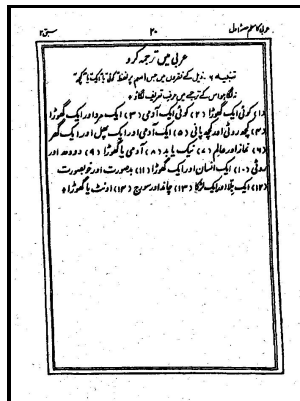 عربی کا معلم حصہ اول ۲۰ سبق ۲
عربی میں ترجمہ کرو
تنبیہ ۶ ۔ ذیل کے فقروں میں جس اسم پر لفظ کوئی یا ایک یا کچھ
نہ لگا ہو اس کے ترجمے میں حرف تعریف لگاؤ ۔
(۱) کوئی ایک گھوڑا (۲) کوئی آدمی (۳) ایک مرد اور ایک گھوڑا
(۴) کچھ روٹی اور کچھ پانی (۵) ایک آدمی اور ایک پھل اور ایک گھر
(۶) نماز اور عالم (۷) نیک یا بد (۸) آدمی یا گھوڑا (۹) دودھ اور
روٹی (۱۰) ایک انسان اور ایک گھوڑا (۱۱) بدصورت اور خوبصورت
(۱۲) ایک اور ایک لڑکا (۱۳) چاند اور سورج (۱۴) اونٹ یا گھوڑا ۔